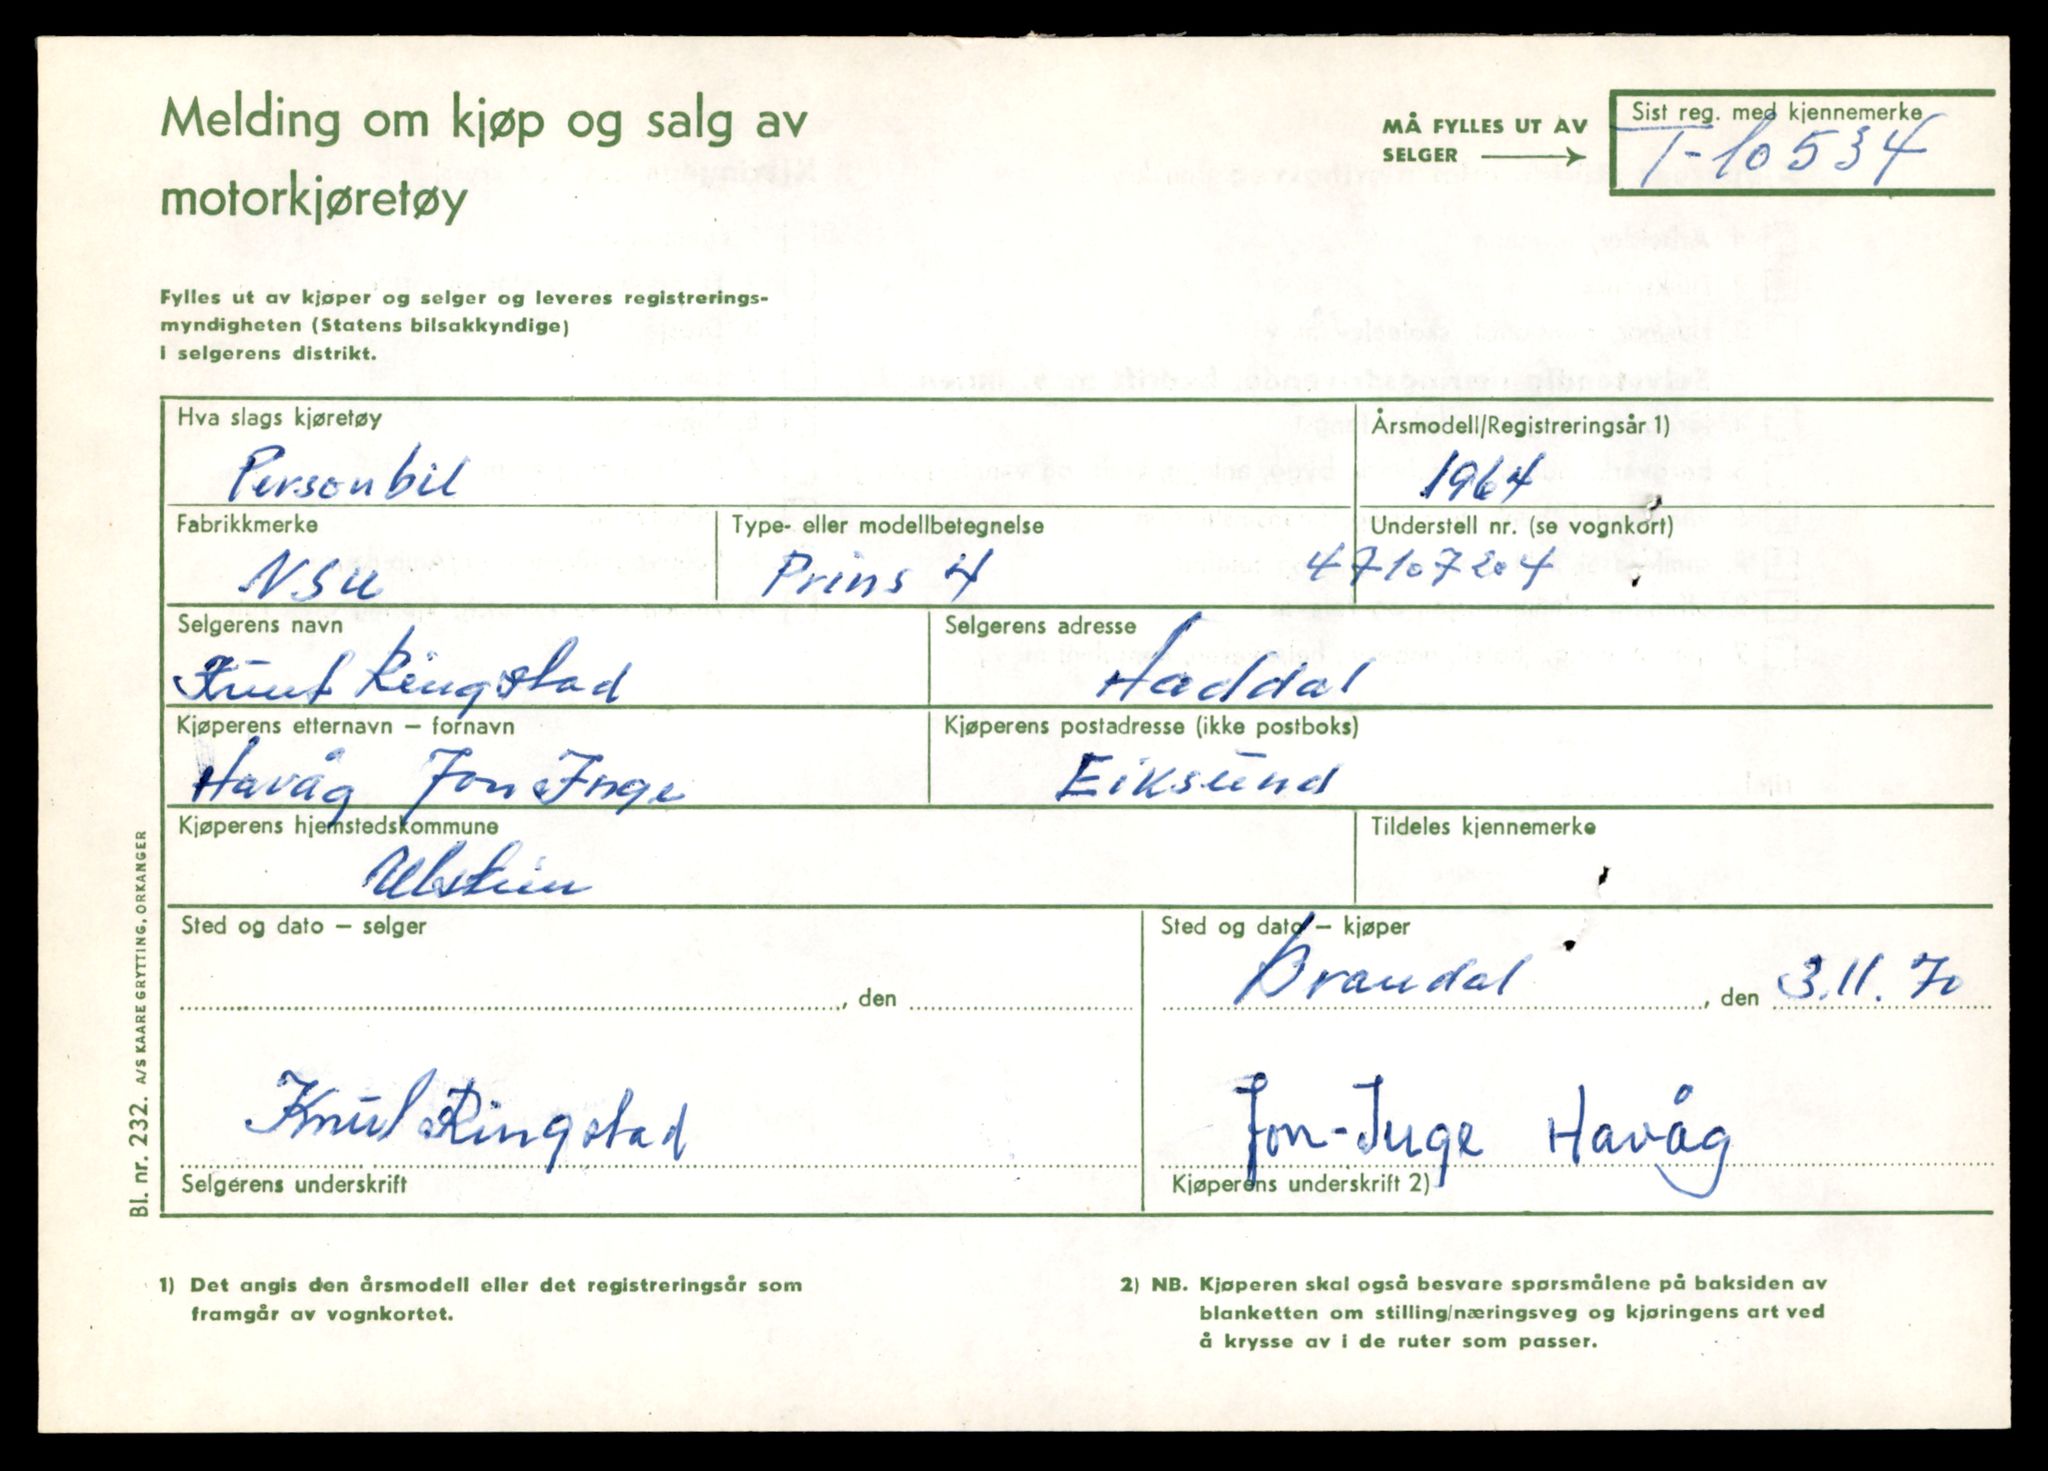 Melding om kjøp og salg av
motorkjøretøy
MÅ FYLLES UT AV
SELGER
Sist reg. med kjennemerke
T-10534
Fylles ut av kjøper og selger og leveres registrerings-
myndigheten (Statens bilsakkyndige)
i selgerens distrikt.
Hva slags kjøretøy
Personbil
Årsmodell/Registreringsår 1)
1964
Fabrikkmerke
NSU
Type- eller modellbetegnelse
Prins 4
Understell nr. (se vognkort)
47107204
Selgerens navn
Knut Ringstad
Selgerens adresse
Haddal
Kjøperens etternavn – fornavn
Havåg Jon Inge
Kjøperens postadresse (ikke postboks)
Eiksund
Kjøperens hjemstedskommune
Ulstein
Tildeles kjennemerke
Sted og dato – selger
, den
Sted og dato – kjøper
Brandal, den 3.11.70
Knut Ringstad
Selgerens underskrift
Jon-Inge Havåg
Kjøperens underskrift 2)
Bl. nr. 232. A/S KAARE GRYTTING, ORKANGER
1) Det angis den årsmodell eller det registreringsår som
framgår av vognkortet.
2) NB. Kjøperen skal også besvare spørsmålene på baksiden av
blanketten om stilling/næringsveg og kjøringens art ved
å krysse av i de ruter som passer.